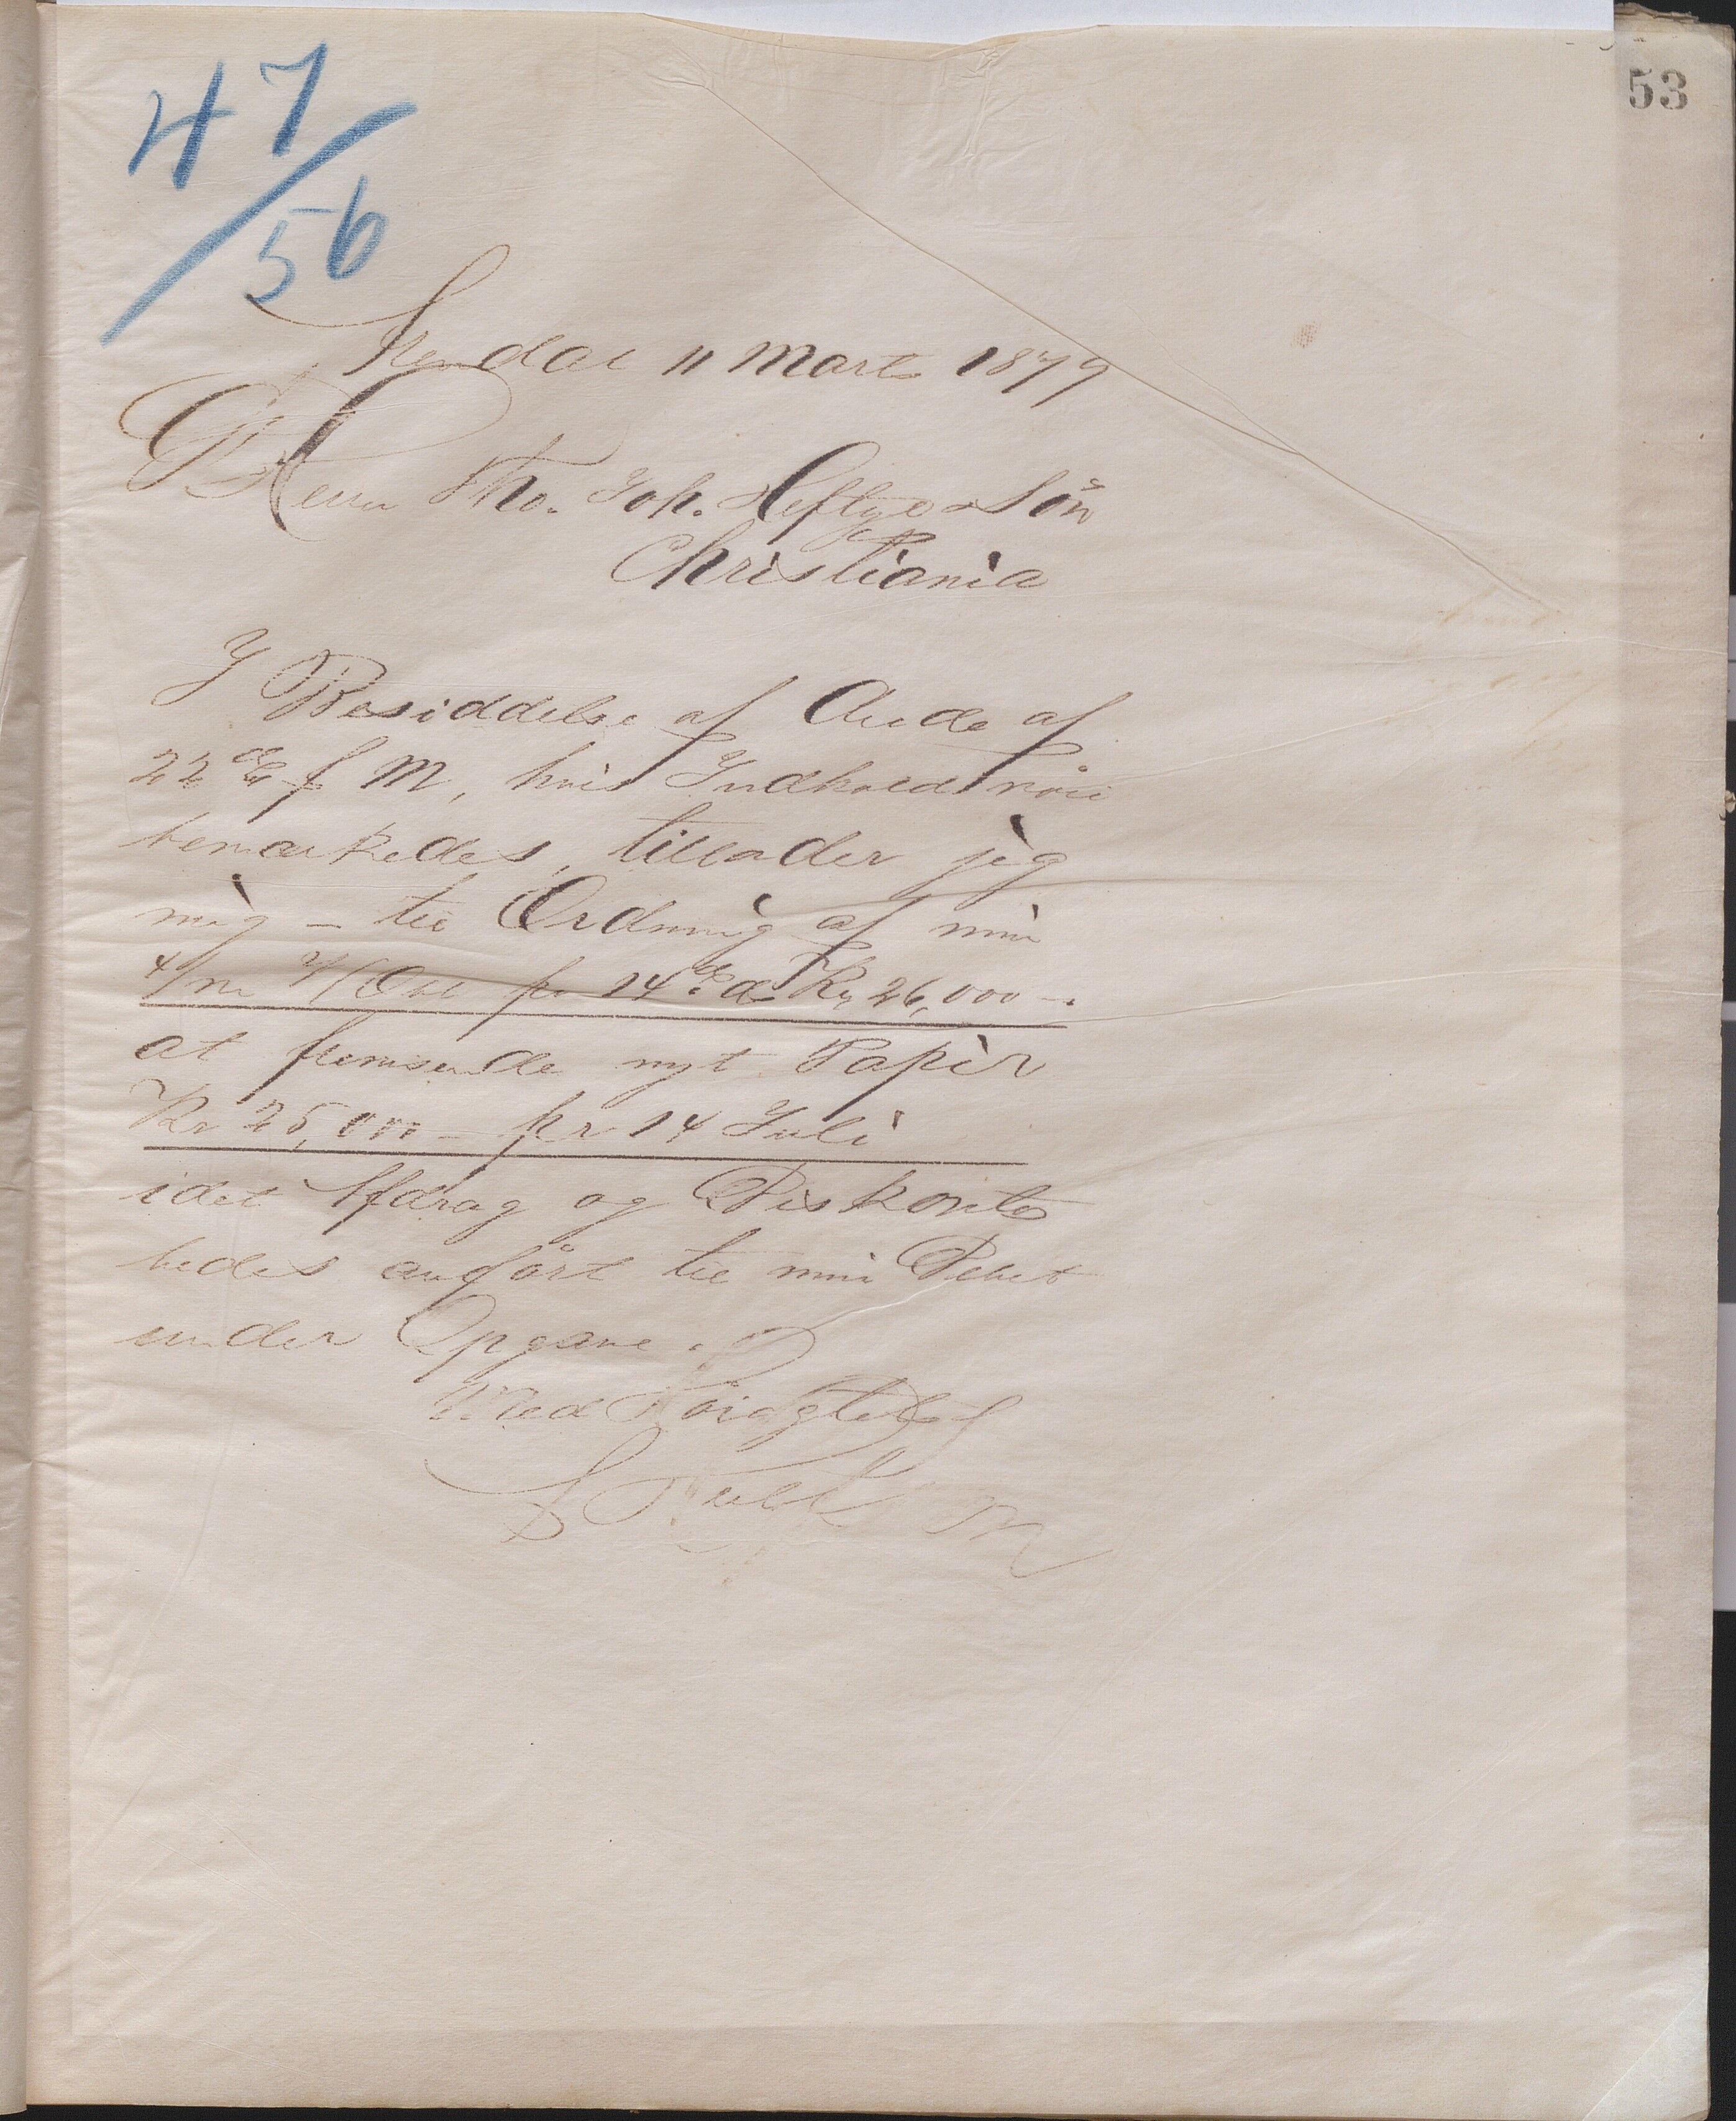 53
47
/
56
Lendal 11 Marts 1879
Herr Tho. Joh. Heftye & Søn
Christiania
I Besiddelse af Ærede af
22de f M, hvis Indhold nøie
bemærkedes, tillader jeg
mig – til Ordning af min
4/m Obl pr 14de ds Kr 26,000 –.
at fremsende nyt Papir
Kr 25,000 – pr 14 Juli
idet Afdrag og Diskonto
bedes anført til min Debet
under Opgave.
Med Høiagtelse